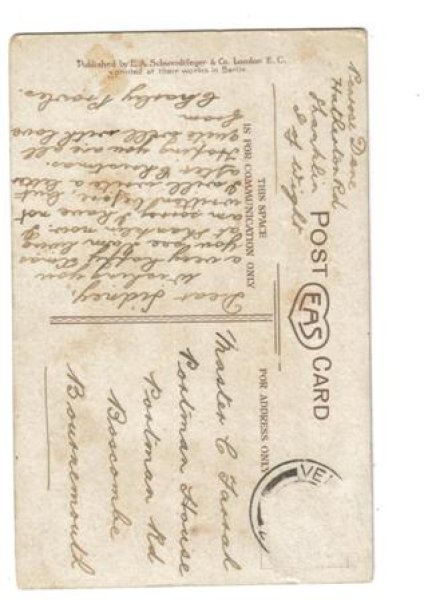 Published by E. A. Schwerdtfeger & Co. London E. C.
printed at their works in Berlin.
Dane
Hatherton Rd
Shanklin
I of Wight
POST CARD
EAS
THIS SPACE
IS FOR COMMUNICATION ONLY
FOR ADDRESS ONLY
Dear Sidney,
Wishing you
a very happy Xmas
you see I am living
at Shanklin now. I
am sorry I have not
written before but
I will write a letter
after Christmas.
Hoping you are all
quite well with love
from
Charley
Master C
Portman House
Portman Rd
Boscombe
Bournemouth
VE